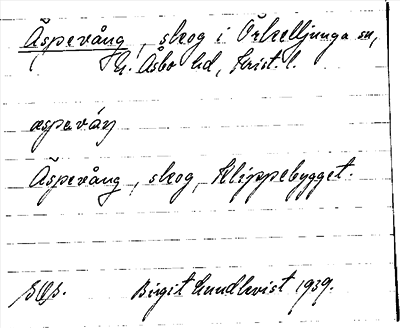 Äspevång, skog i Örkelljunga sn,
N. Åsbo hd, Krist. l.
æspevåŋ
Äspevång, skog, Klippebygget.
Birgit Lundkvist 1939.